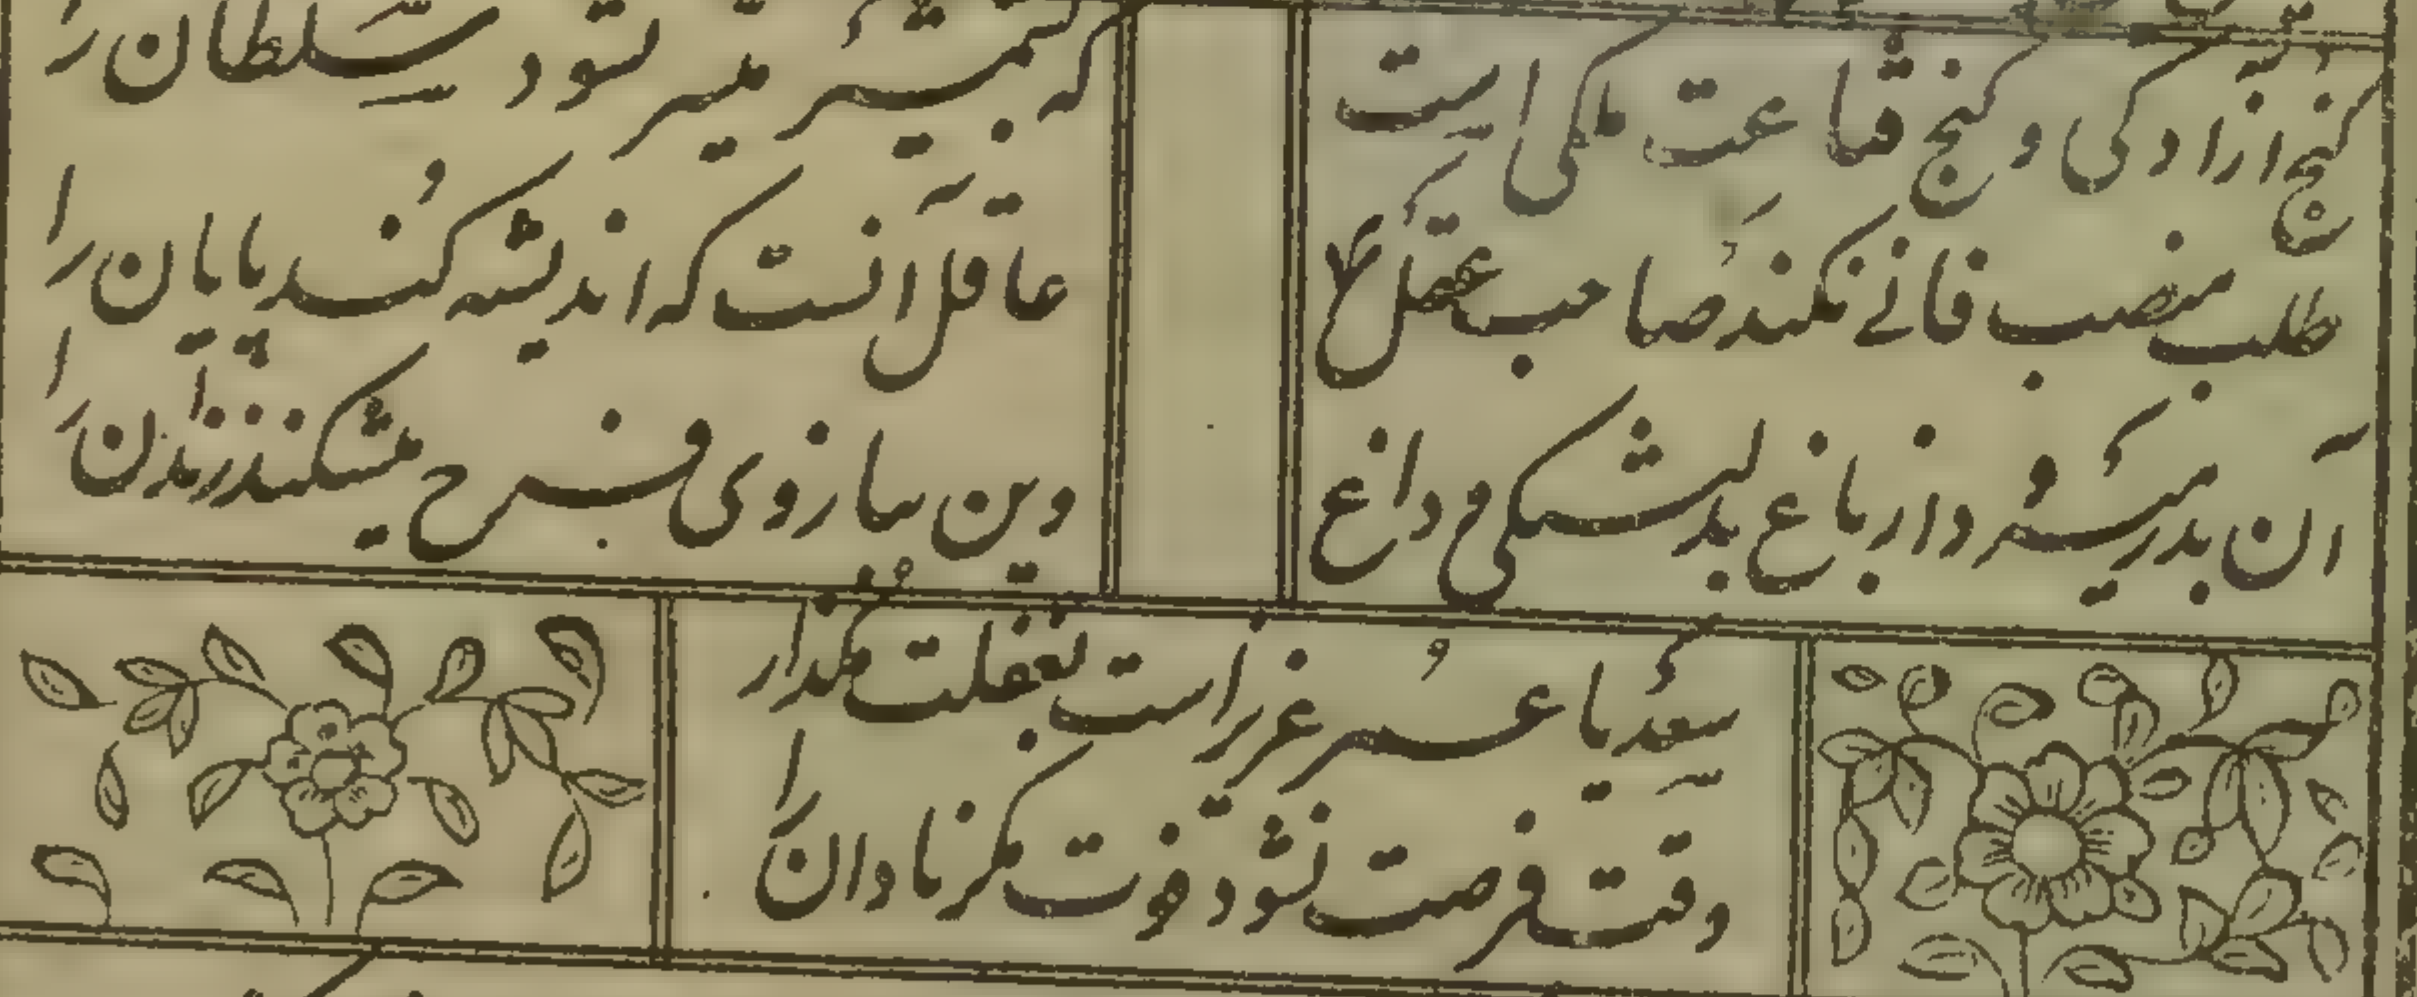 گنج ازادکی و کنج قناعت ملکی است
که بشمشیر میسر نشود سلطان را
طلب منصب فانی نکند صاحب عقل
عاقل آنست که اندیشه کند پایان را
آن بدر میرود از باغ بدلتنگی و داغ
وین ببازوی فرح میشکند زندان را
سعدیا عمر عزیز است بغفلت مگذار
وقت فرصت نشود فوت مگر نادان را